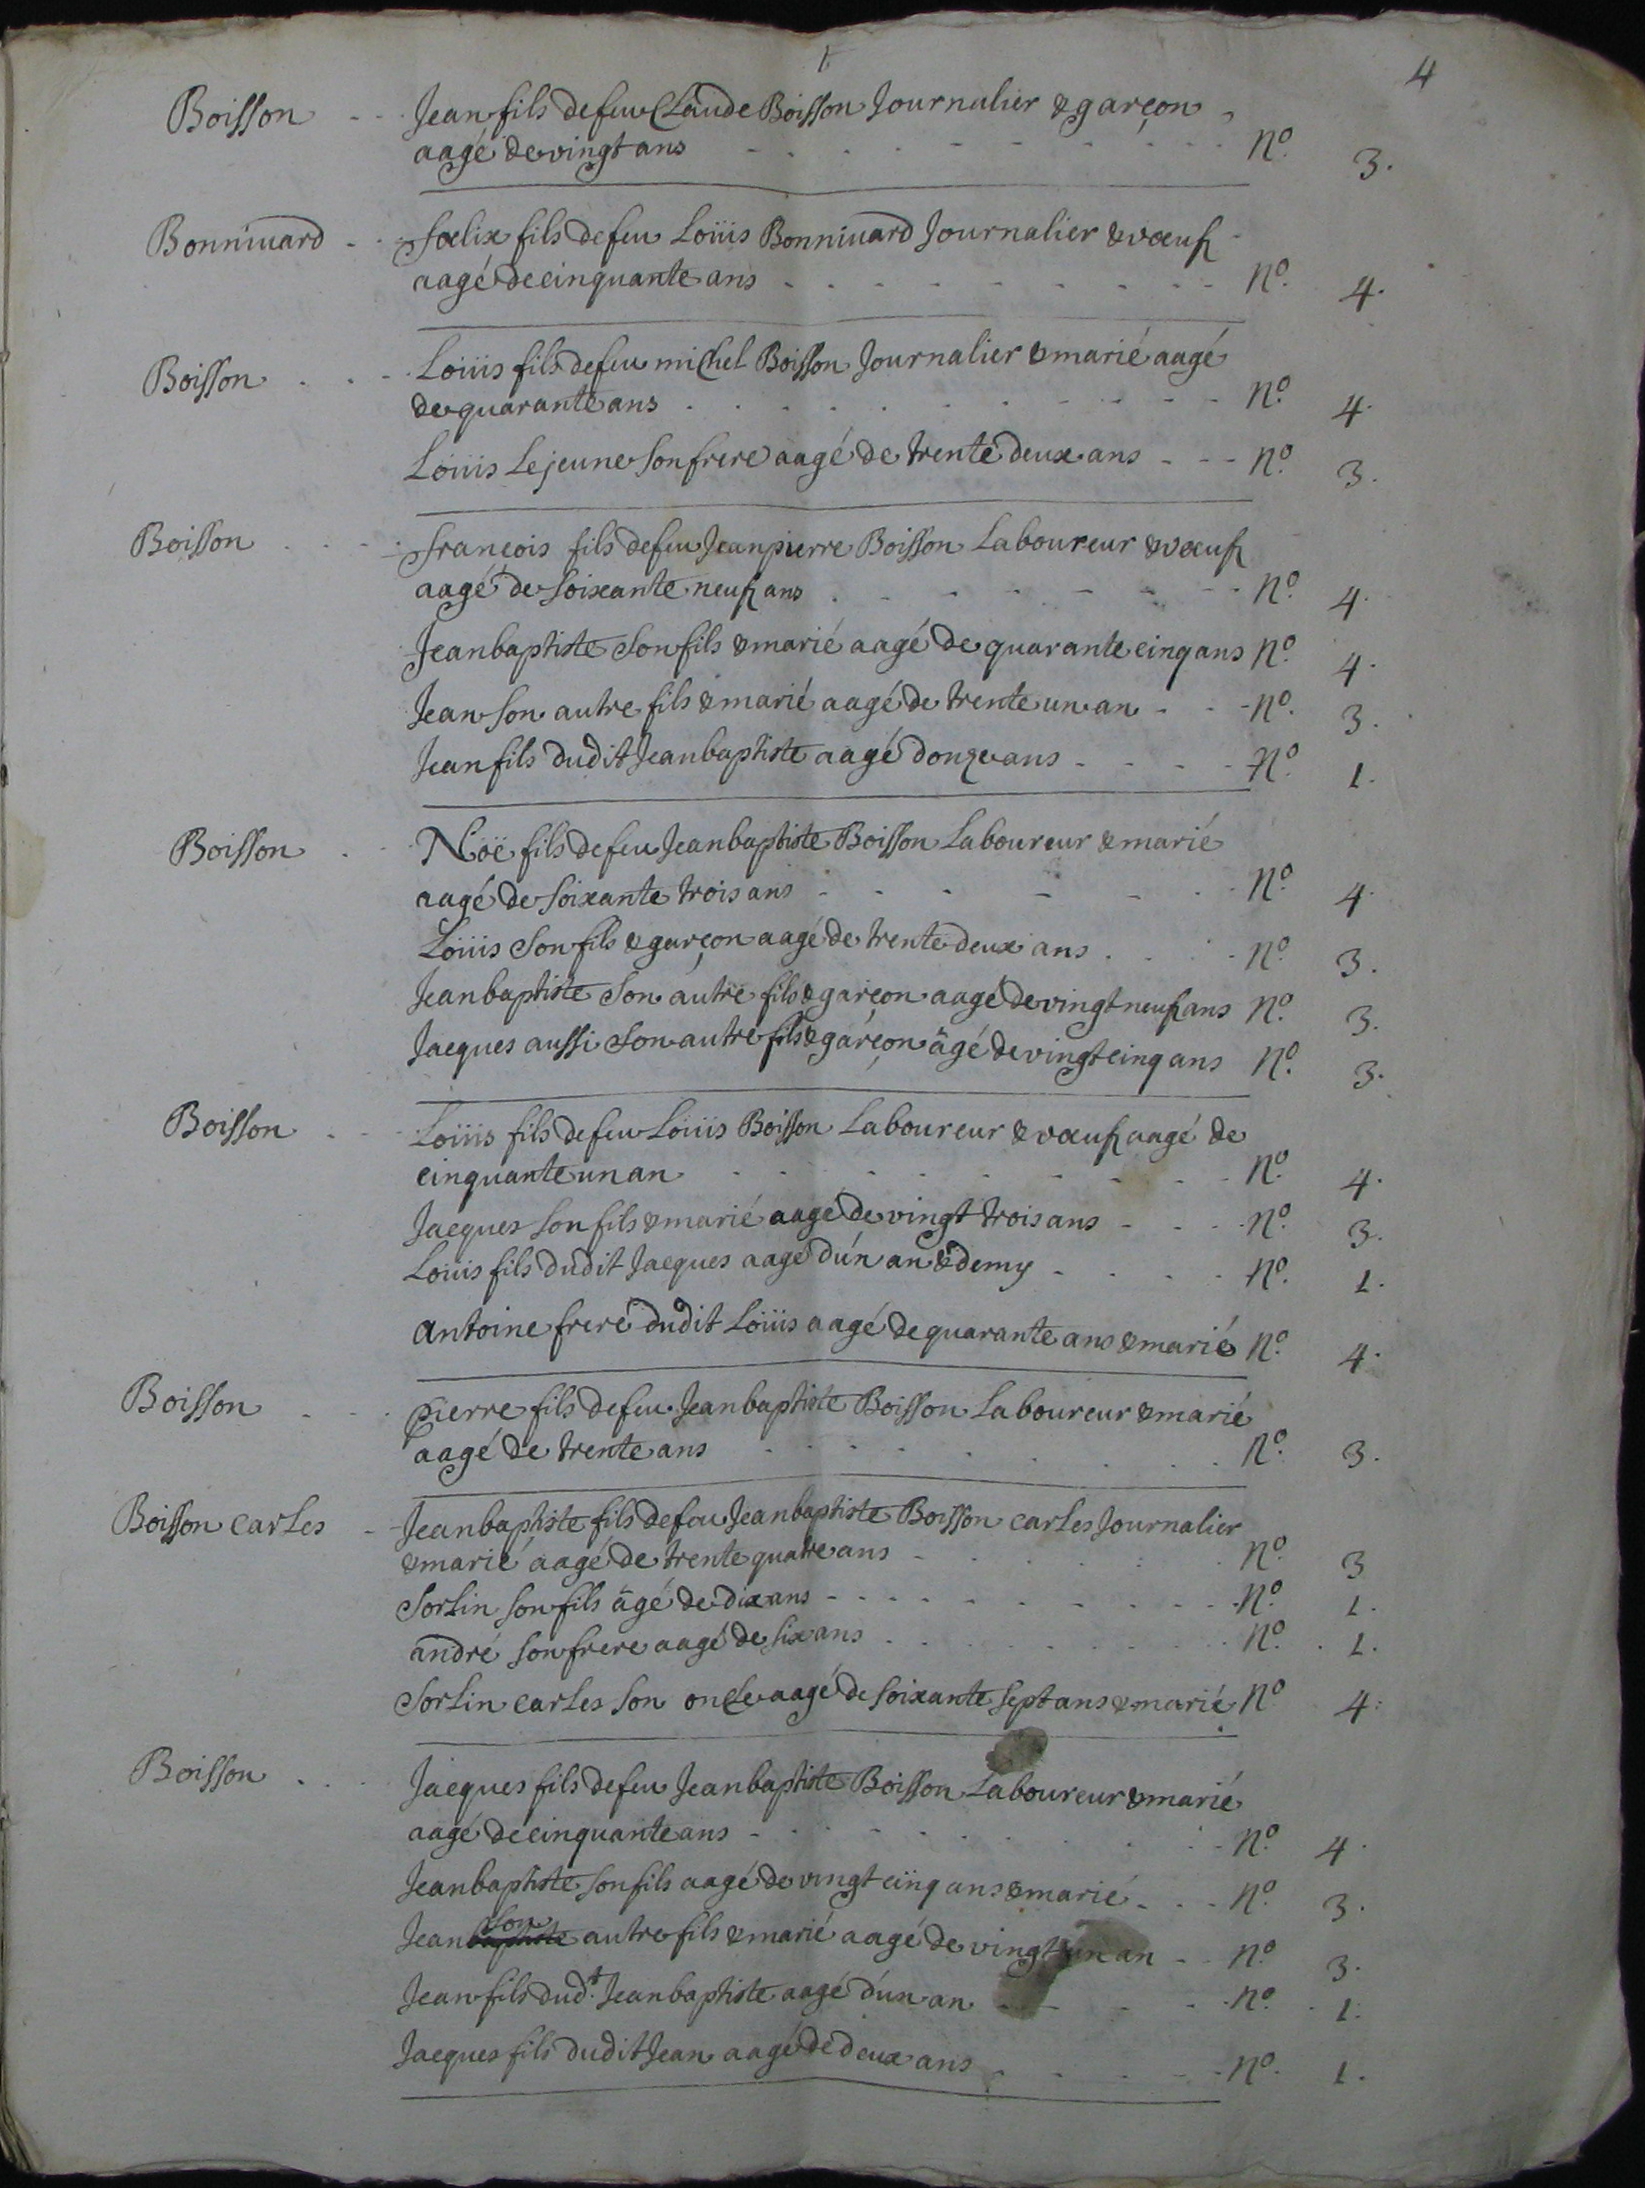 4
Boisson - - Jean fils de feu Claude Boisson Journalier & garçon
aagé de vingt ans - - - - N.º 3.
Bonniuard - - fœlix fils de feu Loüis Bonniuard Journalier & vœuf
aagé de cinquante ans - - - - N.º 4.
Boisson - - Loüis fils de feu michel Boisson Journalier & marié aagé
de quarante ans - - - - N.º 4.
Loüis Le jeune son frere aagé de trente deux ans - - - N.º 3.
Boisson - - françois fils de feu Jean pierre Boisson Laboureur & vœuf
aagé de soixante neuf ans - - - - N.º 4.
Jean baptiste son fils & marié aagé de quarante cinq ans N.º 4.
Jean son autre fils & marié aagé de trente un an - - N.º 3.
Jean fils dudit Jean baptiste aagé d'onze ans - - - - N.º 1.
Boisson - - Noë fils de feu Jean baptiste Boisson Laboureur & marié
aagé de soixante trois ans - - - - N.º 4.
Loüis son fils & garçon aagé de trente deux ans - - - N.º 3.
Jean baptiste son autre fils & garçon aagé de vingt neuf ans N.º 3.
Jacques aussi son autre fils & garçon âgé de vingt cinq ans N.º 3.
Boisson - - Loüis fils de feu Loüis Boisson Laboureur & vœuf aagé de
cinquante un an - - - - N.º 4.
Jacques son fils & marié aagé de vingt trois ans - - - N.º 3.
Loüis fils dudit Jacques aagé d'un an & demy - - - - N.º 1.
antoine frere dudit Loüis aagé de quarante ans & marié N.º 4.
Boisson - - pierre fils de feu Jean baptiste Boisson Laboureur & marié
aagé de trente ans - - - - N.º 3.
Boisson carles - Jean baptiste fils de feu Jean baptiste Boisson carles Journalier
& marié aagé de trente quatre ans - - - - N.º 3
Sorlin son fils âgé de dix ans - - - - N.º 1.
andré son frere aagé de six ans - - - - N.º 1.
Sorlin carles son oncle aagé de soixante sept ans & marié N.º 4.
Boisson - - Jacques fils de feu Jean baptiste Boisson Laboureur & marié
aagé de cinquante ans - - - - N.º 4.
Jean baptiste son fils aagé de vingt cinq ans & marié - - N.º 3.
Jean son autre fils & marié aagé de vingt un an - - N.º 3.
Jean fils dud.t Jean baptiste aagé d'un an - - - - N.º 1.
Jacques fils dudit Jean aagé de deux ans - - - - N.º 1.